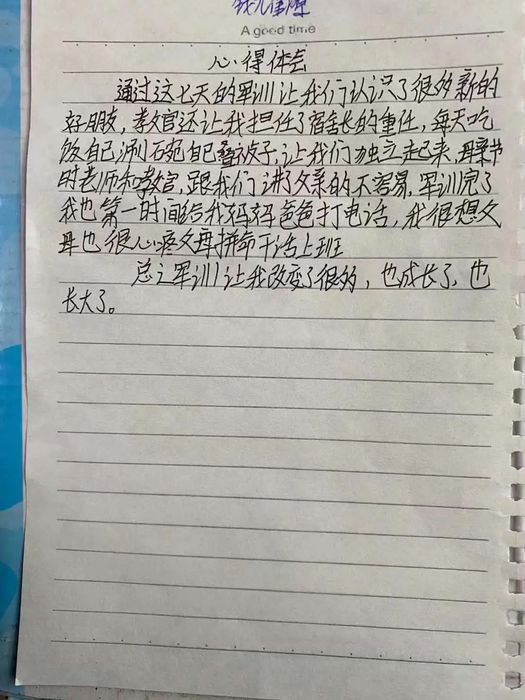 A good time
心得体会
通过这七天的军训让我们认识了很多新的
好朋友，教官还让我担任了宿舍长的重任，每天吃
饭自己涮石宛自己叠被子，让我们独立起来，母亲节
时老师和教官，跟我们讲了父亲的不容易，军训完了
我也第一时间给我妈妈爸爸打电话，我很想父
母也很心疼父母拼命干活上班
总之军训让我改变了很多，也成长了，也
长大了。